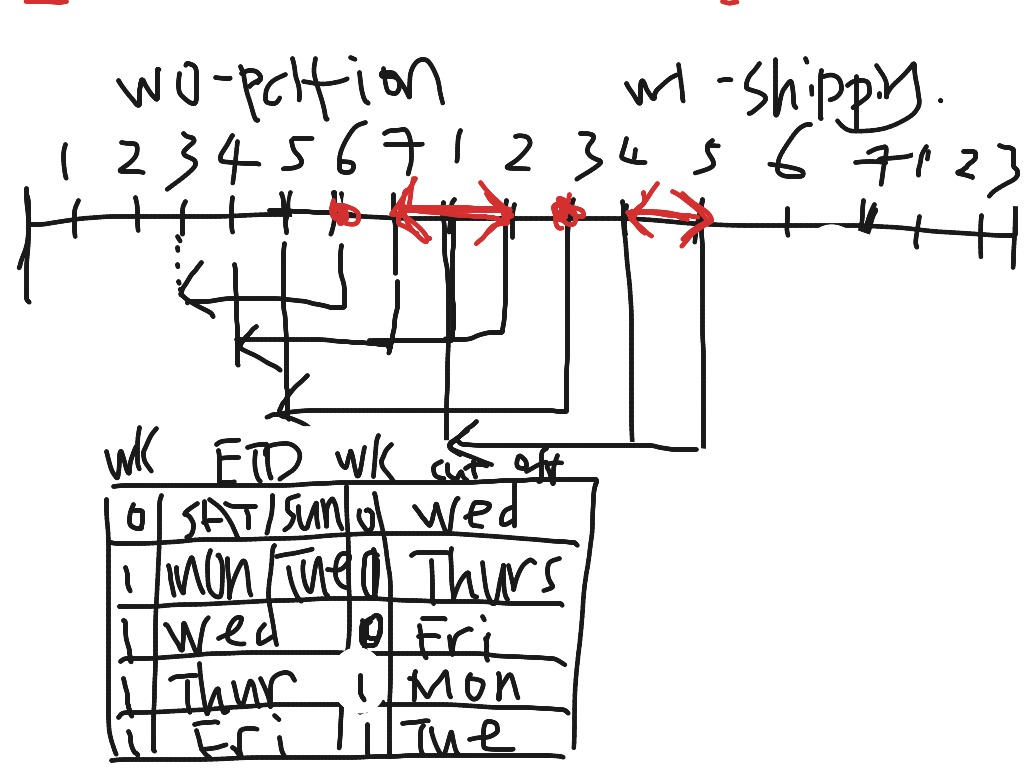 w1 -shippy.
1 2 3 4 5 6 7 1 2 3 4 5 6 7 1 2 3
WK ETD WK cut off
0 SAT/SUN 0 Wed
1 MON/TUE 0 Thurs
1 Wed 0 Fri
1 Thur 1 Mon
1 Fri 1 Tue